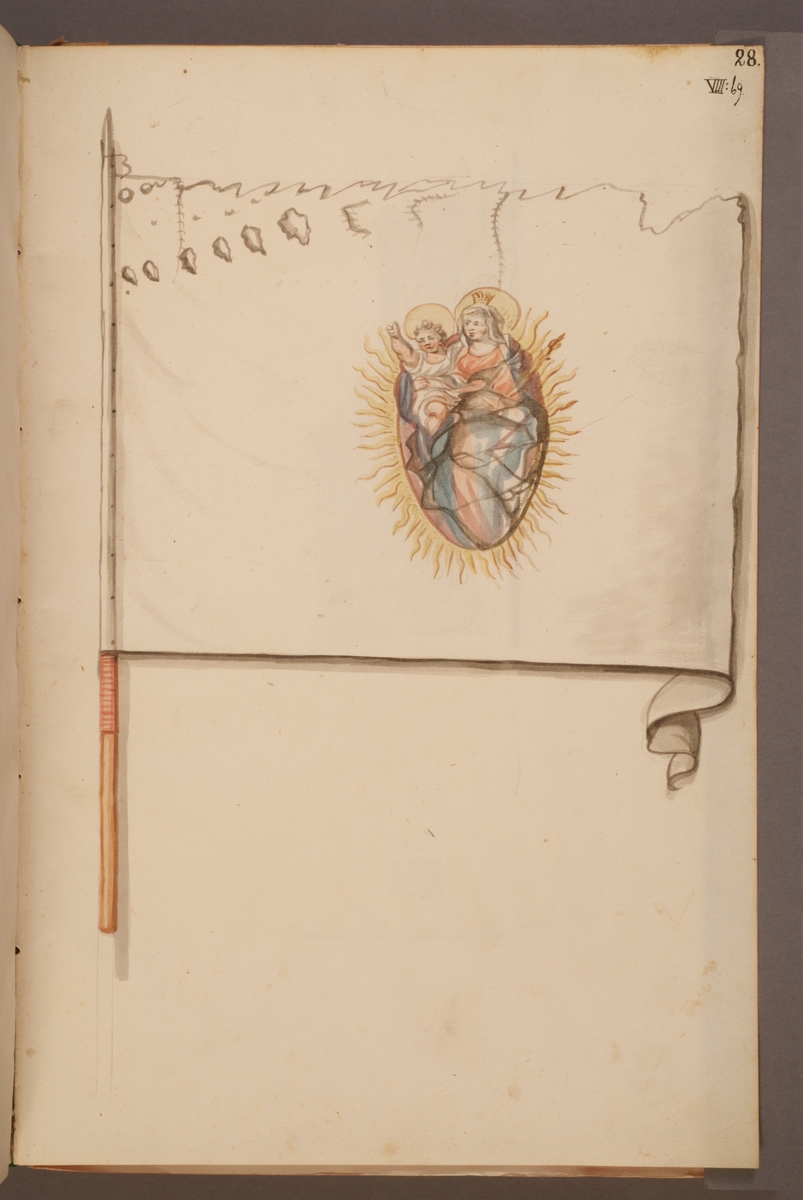 28.
VIII: 69.